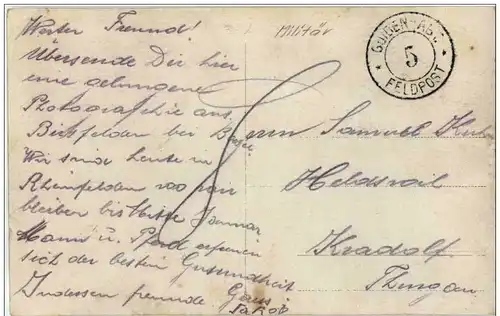 Werter Freund!
Übersende Dir hier
eine gelungene
Photographie aus
Birsfelden bei Basel.
Wir sind heute in
Rheinfelden wo wir
bleiben bis Mitte Januar
Mann u. Pferd erfreuen
sich der besten Gesundheit
Indessen freundl.
Jakob
Militär
GUIDEN-ABT.
5
FELDPOST
Samuel
Heldswil
Kradolf
Thurgau